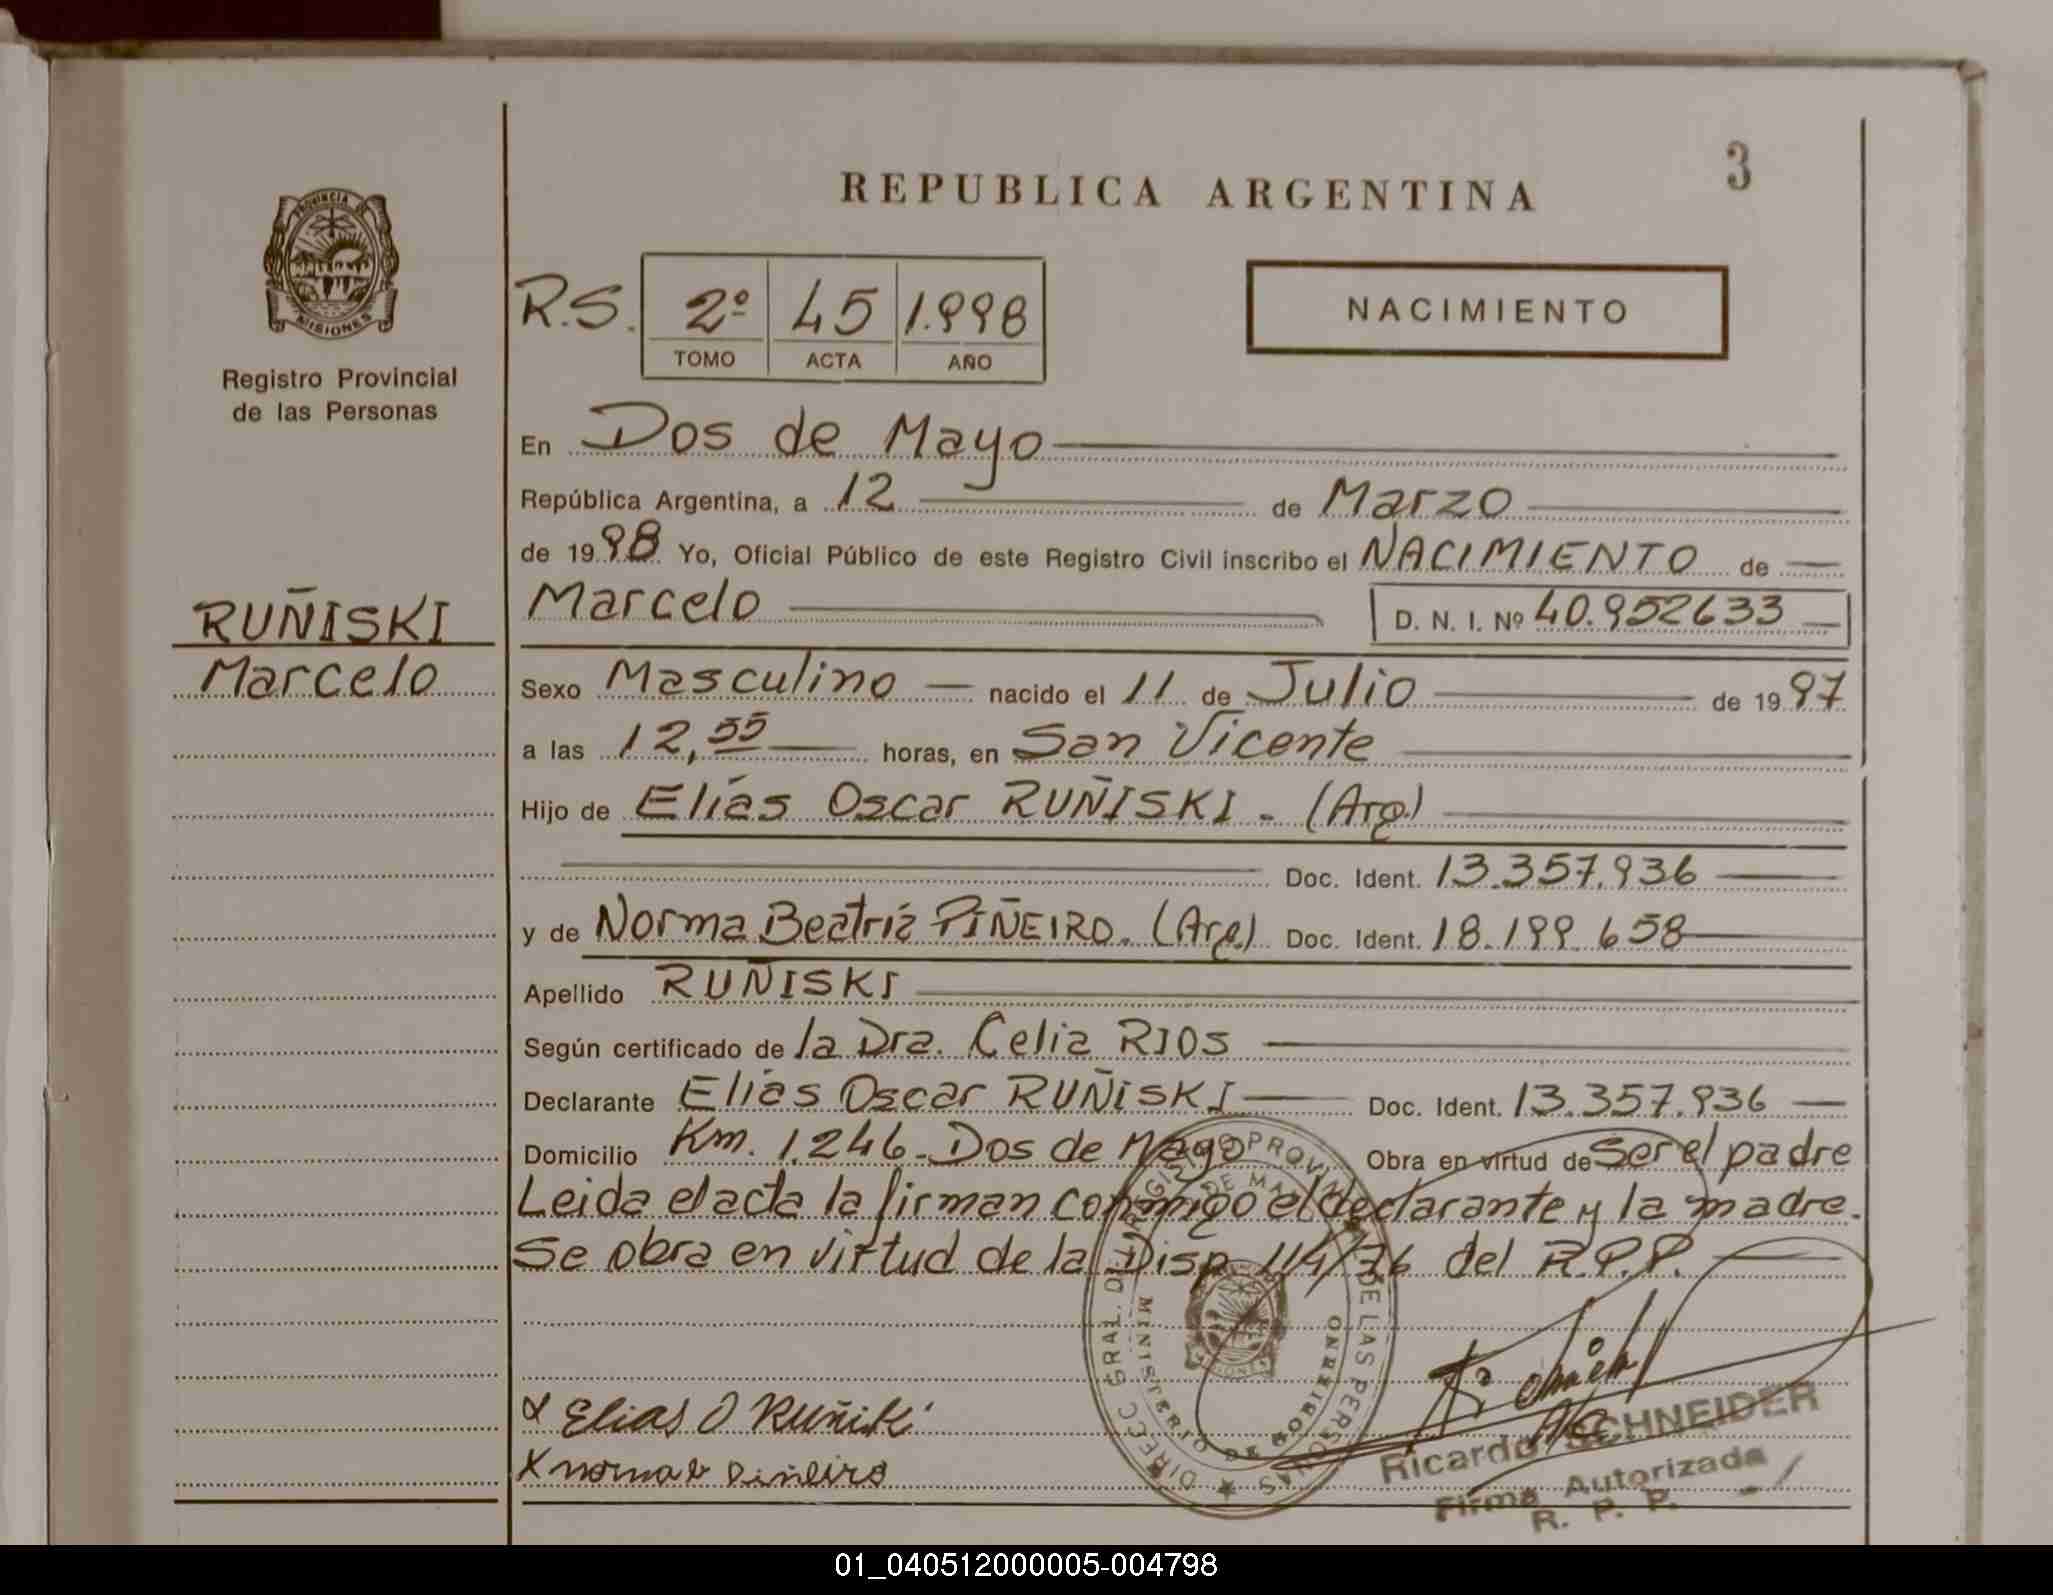 REPUBLICA ARGENTINA
3
PROVINCIA DE
MISIONES
Registro Provincial
de las Personas
R.S.
2º 45 1.998
TOMO ACTA AÑO
NACIMIENTO
En Dos de Mayo
República Argentina, a 12 de Marzo
de 1998 Yo, Oficial Público de este Registro Civil inscribo el NACIMIENTO de
Marcelo D. N. I. Nº 40.952633
RUÑISKI
Marcelo
Sexo Masculino nacido el 11 de Julio de 1997
a las 12,55 horas, en San Vicente
Hijo de Elías Oscar RUÑISKI. (Arg.)
Doc. Ident. 13.357.936
y de Norma Beatriz PIÑEIRO. (Arg.) Doc. Ident. 18.199.658
Apellido RUÑISKI
Según certificado de la Dra. Celia RIOS
Declarante Elías Oscar RUÑISKI Doc. Ident. 13.357.936
Domicilio Km. 1.246-Dos de Mayo Obra en virtud de Ser el padre
Leida el acta la firman conmigo el declarante y la madre.
Se obra en virtud de la Disp. 114/76 del R.P.P.
x Elias O Ruñiki
x norma b Piñeiro
DIRECC. GRAL. DEL REGISTRO PROVINCIAL DE LAS PERSONAS
MINISTERIO DE GOBIERNO
Ricardo SCHNEIDER
Firma Autorizada
R. P. P.
01_040512000005-004798